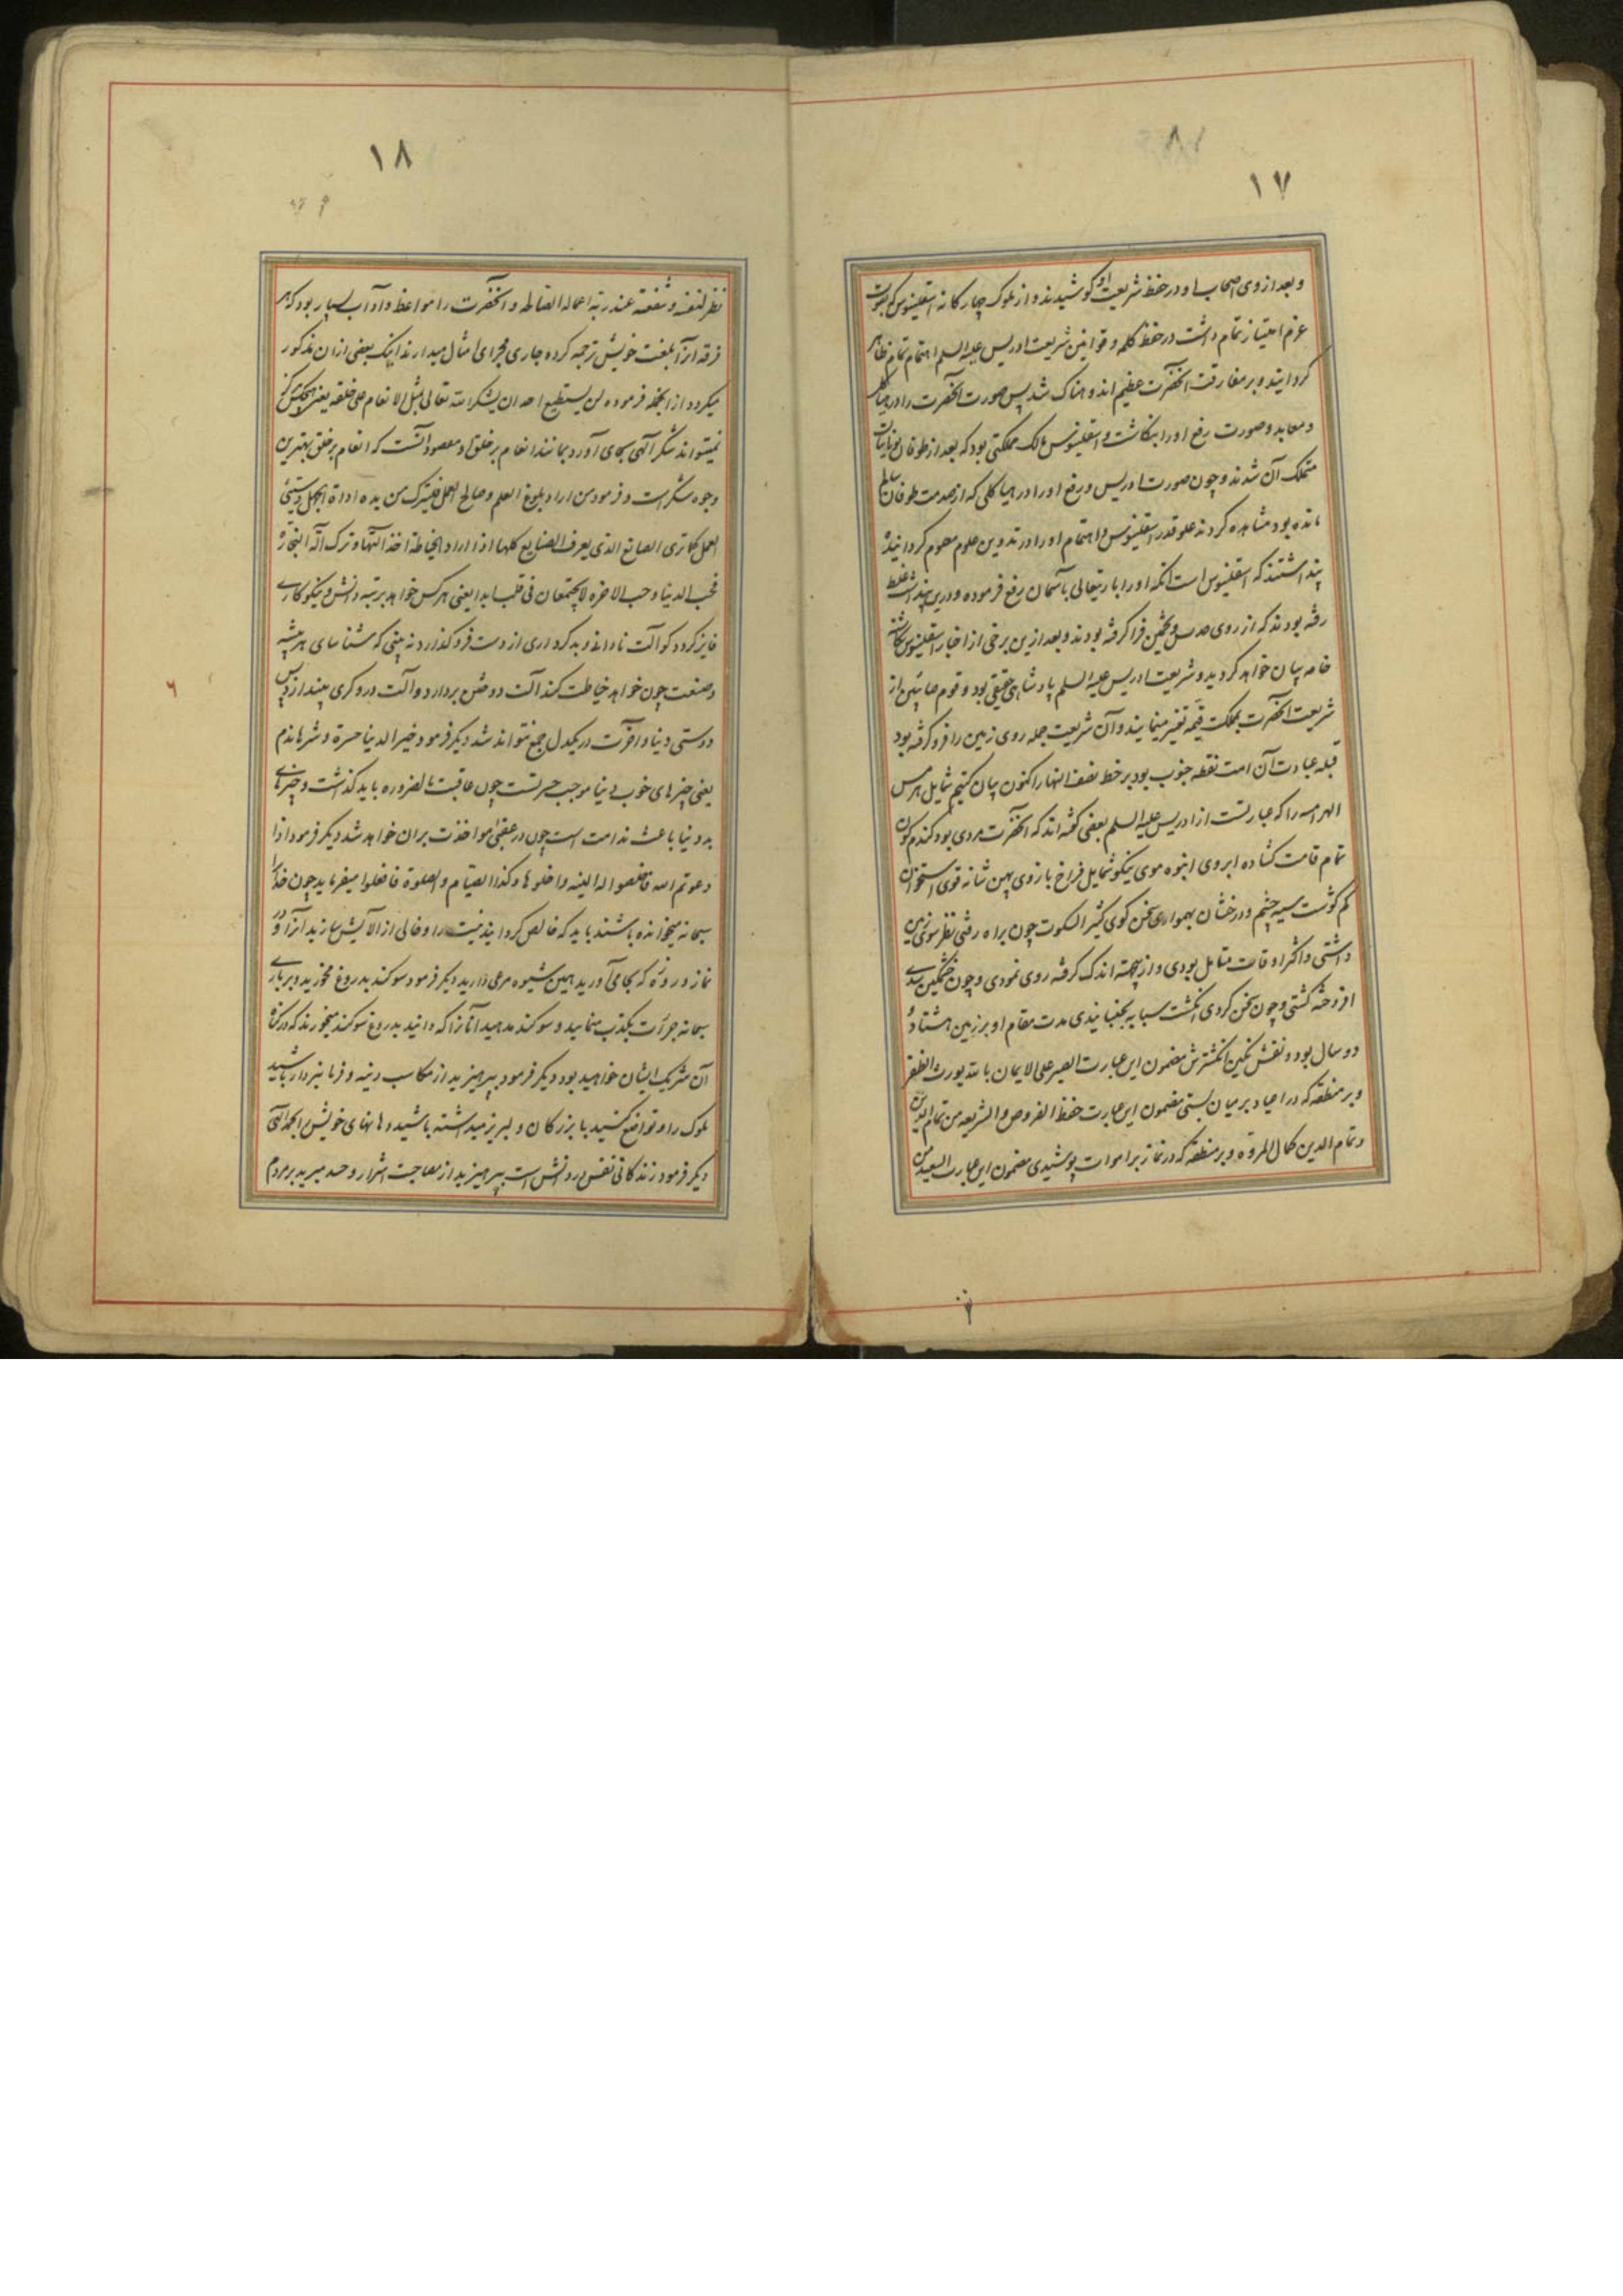 ۱۷
و بعد از وی اصحاب او در حفظ شریعت او کوشیدند و از ملوک چهارگانه اسقلینوس که بصورت
عزم امتیاز تمام داشت در حفظ کلمه و قوانین شریعت ادریس علیه السلم اهتمام تمام ظاهر
کردانید و بر مفارقت آنحضرت عظیم اندوهناک شد پس صورت آنحضرت را در هیاکل
و معابد و صورت رفع او را بنگاشت و اسقلینوس مالک مملکتی بود که بعد از طوفان یونانیان
متملک آن شدند و چون صورت ادریس و رفع او را در هیاکلی که از صدمت طوفان سالم
مانده بود مشاهده کردند علو قدر اسقلینوس و اهتمام او را در تدوین علوم معلوم کردانیده
پنداشتند که اسقلینوس است آنکه او را باریتعالی بآسمان رفع فرموده و درین پنداشت غلط
رفته بودند که از روی حدس و تخمین فرا گرفته بودند و بعد ازین برخی از اخبار اسقلینوس نگاشته
خامه بیان خواهد کردید و شریعت ادریس علیه السلم پادشاهی حقیقی بود و قوم صابئین از
شریعت آنحضرت بملکت قیمه تعبیر مینمایند و آن شریعت جمله روی زمین را فرو گرفته بود
قبله عبادت آن امت نقطه جنوب بود بر خط نصف النهار اکنون بیان کنیم شمایل هرمس
الهرامسه را که عبارتست از ادریس علیه السلم بعضی گفته اند که آنحضرت مردی بود گندم گون
تمام قامت گشاده ابروی انبوه موی نیکو شمایل فراخ بازوی پهن شانه قوی استخوان
کم گوشت سیه چشم و درخشان بهمواری سخن گوی کثیر السکوت چون براه رفتی نظر سوی زمین
داشتی و اکثر اوقات متامل بودی و از پیوسته اندک گرفته روی نمودی و چون خشمگین شدی
افروخته گشتی و چون سخن کردی انگشت سبابه بجنبانیدی مدت مقام او بر زمین هشتاد و
دو سال بود و نقش نگین انگشترش مضمون این عبارت الصبر علی الایمان بالله یورث الظفر
و بر منطقه که در اعیاد بر میان بستی مضمون این عبارت حفظ الفروض و الشریعه من تمام الدین
و تمام الدین کمال المروة و بر منطقه که در نماز بر اموات پوشیدی مضمون این عبارت السعید من
۱۸
نظر لنفسه و شفعته عند ربه اعماله الصالحه و آنحضرت را مواعظ و آداب بسیار بود که هر
فرقه آنرا بلغت خویش ترجمه کرده جاری مجرای امثال میدارند اینک بعضی از آن مذکور
میگردد از آنجمله فرموده لن یستطیع احد ان یشکر الله تعالی بمثل الانعام علی خلقه یعنی هیچکس
نمیتواند شکر آلهی بجای آورد بمانند انعام بر خلق او مقصود آنست که انعام بر خلق بهترین
وجوه شکر است و فرمود من اراد بلوغ العلم و صالح العمل فلیترک من یده اداة الجهل و سیئ
العمل کما تری الصانع الذی یعرف الصنایع کلها اذا اراد الخیاطة اخذ آلتها و ترک آلة النجارة
فحب الدنیا و حب الاخره لا یجتمعان فی قلب ابدا یعنی هر کس خواهد برتبه دانش و نیکوکاری
فایز کردد کو آلت نادانی و بدکرداری از دست فرو گذارد نه بینی که شناسای هر پیشه
و صنعت چون خواهد خیاطت کند آلت دوختن بردارد و آلت درودگری بیندازد پس
دوستی دنیا و آخرت در یکدل جمع نتواند شد دیگر فرمود خیر الدنیا حسرة و شرها ندم
یعنی چیزهای خوب دنیا موجب حسرتست چون عاقبت بالضروره باید گذاشت و چیزهای
بد دنیا باعث ندامت است چون در عقبی مواخذت بران خواهد شد دیگر فرمود اذا
دعوتم الله فاخلصوا له النیه و اخلوها و کذا الصیام و الصلوة فافعلوا میفرماید چون خدا را
سبحانه میخوانده باشند باید که خالص کردانید نیت را و خالی از آلایش سازید آنرا و در
نماز و روزه که بجا می آورید همین شیوه مرعی دارید دیگر فرمود سوگند بدروغ مخورید و بر باری
سبحانه جرأت بکذب منمایید و سوگند مدهید آنانرا که دانید بدروغ سوگند میخورند که در گناه
آن شریک ایشان خواهید بود دیگر فرمود بپرهیزید از مکاسب دنیه و فرمانبردار باشید
ملوک را و تواضع کنید با بزرگان و لبریز میداشته باشید دهانهای خویش را بحمد آلهی
دیگر فرمود زندگانی نفس در دانش است بپرهیزید از مصاحبت اشرار و حسد مبرید بر مردم